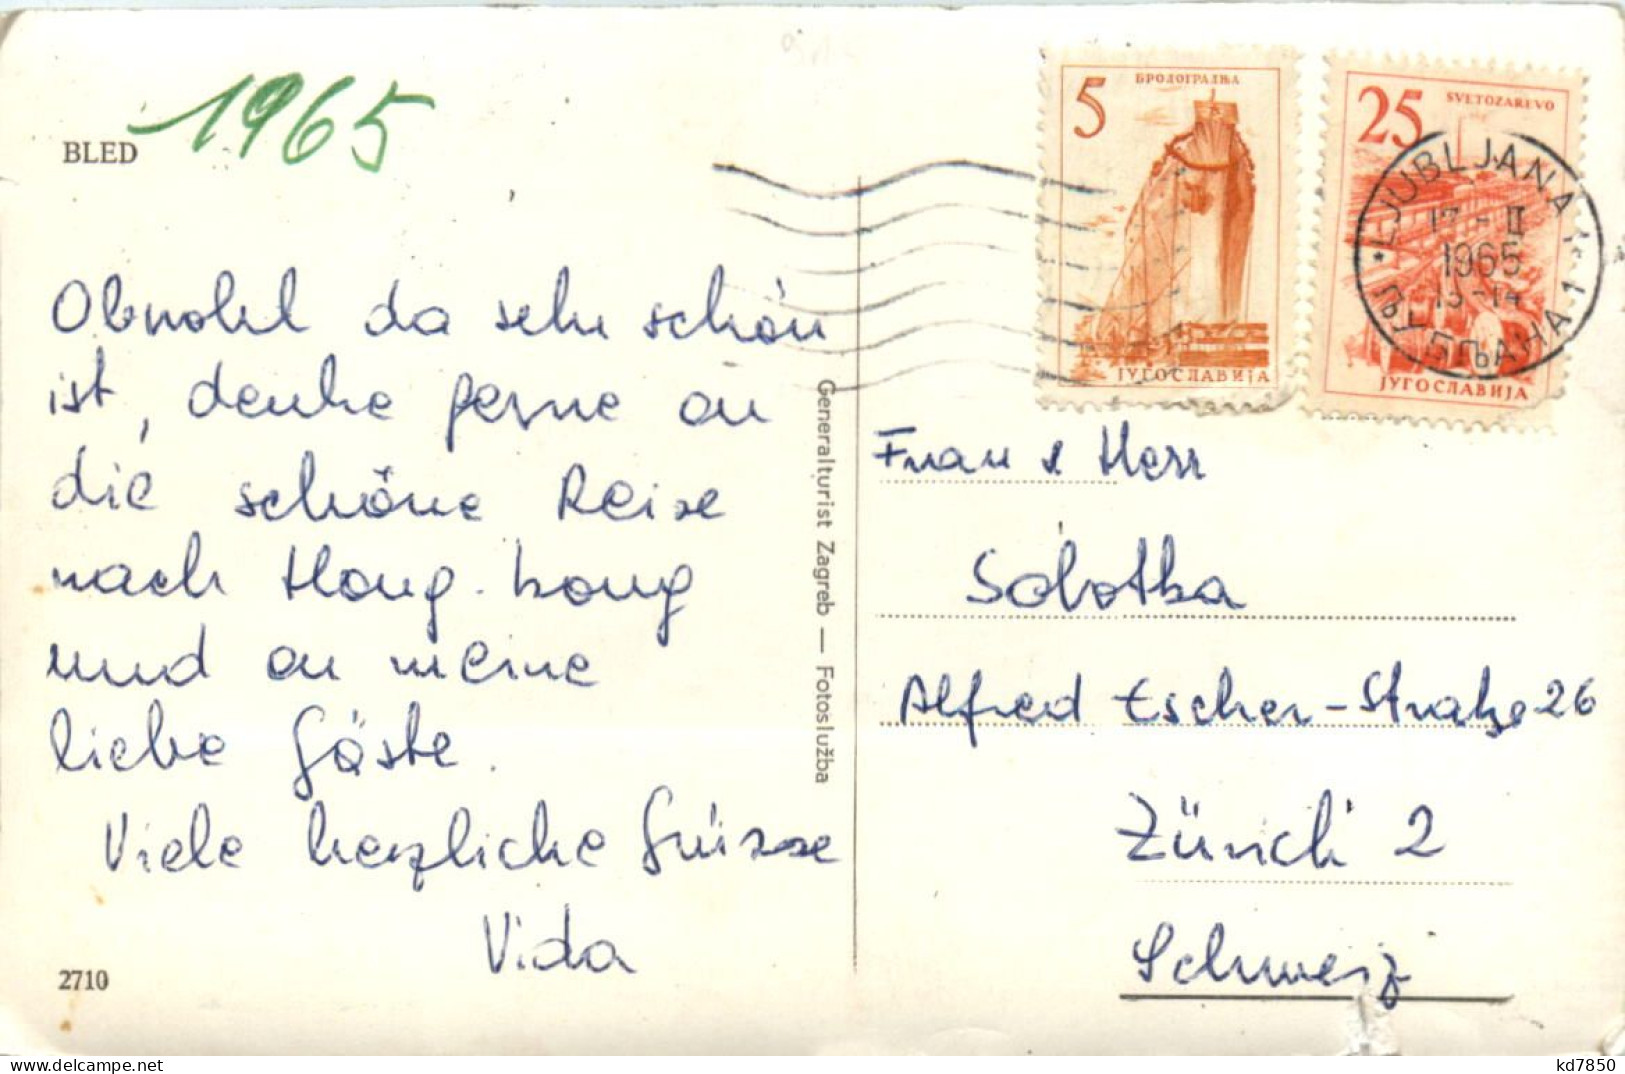 1965
BLED
Obwohl da sehr schön
ist, denke gerne an
die schöne Reise
nach Hong-kong
und an meine
liebe Gäste.
Viele herzliche Grüsse
Vida
2710
Generalturist Zagreb — Fotoslužba
5
БРОДОГРАДЊА
ЈУГОСЛАВИЈА
25
SVETOZAREVO
ЈУГОСЛАВИЈА
LJUBLJANA 1
17-II
1965
13-14
ЉУБЉАНА 1
Frau & Herr
Sobotka
Alfred Escher-Straße 26
Zürich 2
Schweiz
kd7850